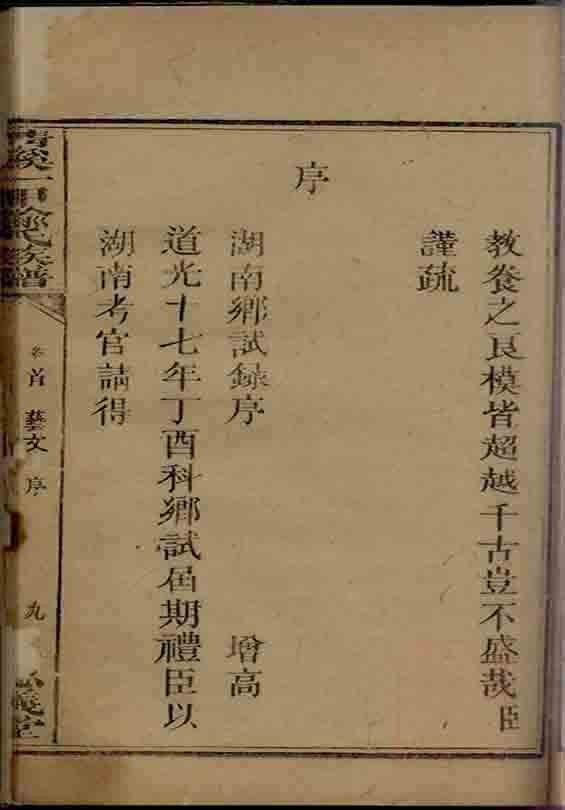 教養之良模皆超越千古豈不盛哉臣
謹疏
序
湖南鄉試録序 增高
道光十七年丁酉科鄉試屆期禮臣以
湖南考官請得
一甲俞氏族譜
卷首 藝文 序 九
義堂